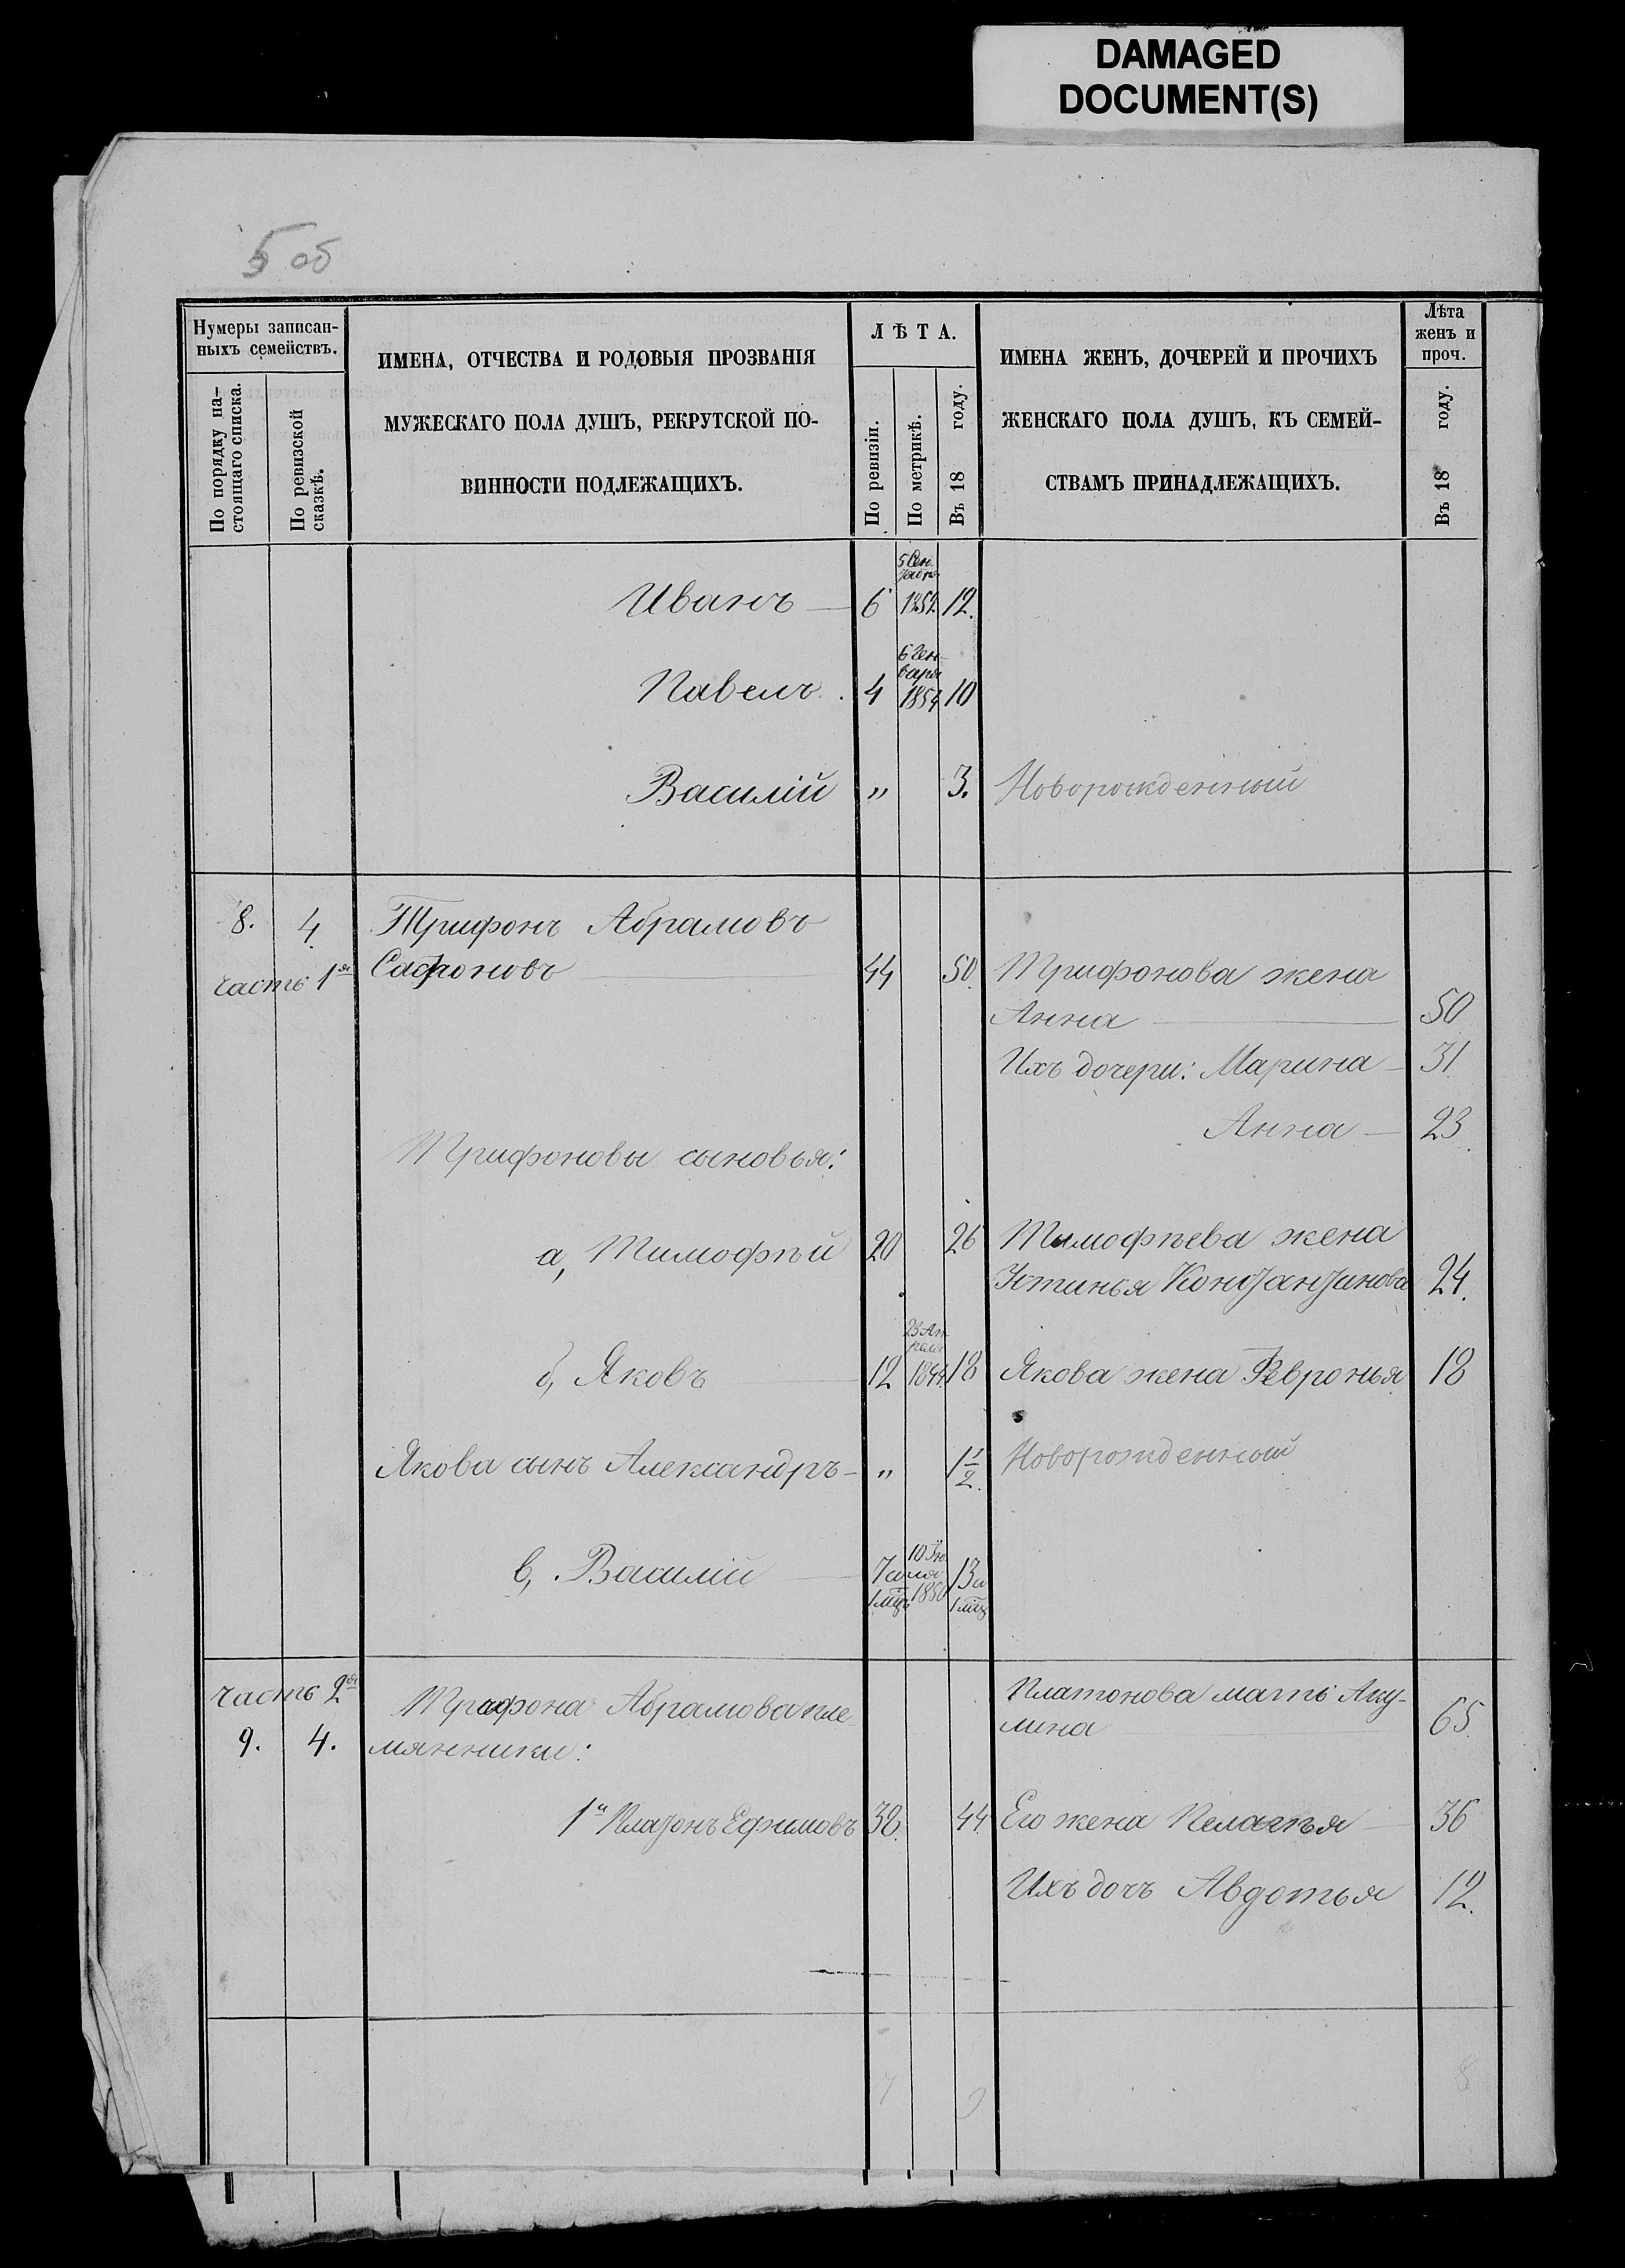 DAMAGED
DOCUMENT(S)
5 об
Нумеры записан-
ныхъ семействъ.
По порядку на-
стоящаго списка.
По ревизской
сказкѣ.
ИМЕНА, ОТЧЕСТВА И РОДОВЫЯ ПРОЗВАНІЯ
МУЖЕСКАГО ПОЛА ДУШЪ, РЕКРУТСКОЙ ПО-
ВИННОСТИ ПОДЛЕЖАЩИХЪ.
ЛѢТА.
По ревизіи.
По метрикѣ.
Въ 18 году.
ИМЕНА ЖЕНЪ, ДОЧЕРЕЙ И ПРОЧИХЪ
ЖЕНСКАГО ПОЛА ДУШЪ, КЪ СЕМЕЙ-
СТВАМЪ ПРИНАДЛЕЖАЩИХЪ.
Лѣта
женъ и
проч.
Въ 18 году.
5 Сен-
тября
Иванъ 6 1852 12.
6 Ген-
варя
Павелъ. 4 1854 10
Василій " 3. Новорожденный
8. 4. Трифонъ Абрамовъ
часть 1я Сафроновъ 44 50. Трифонова жена
Анна 50
Ихъ дочери: Марина 31
Анна 23
Трифоновы сыновья:
а, Тимофѣй 20 26 Тимофѣева жена
Устинья Константинова 24.
23 Ап-
рѣля
б, Яковъ 12 1844 18 Якова жена Февронья 18
Якова сынъ Александръ " 1 1/2 Новорожденный
в, Василій 7 и 1 мцъ 10 Іюля 1850 13 и 1 мцъ
часть 2я Трифона Абрамова пле-
9. 4. мянники:
Платонова мать Аку-
лина 65.
1й Платонъ Ефимовъ 38. 44. Его жена Пелагѣя 36
Ихъ дочъ Авдотья 12.
7 9 8